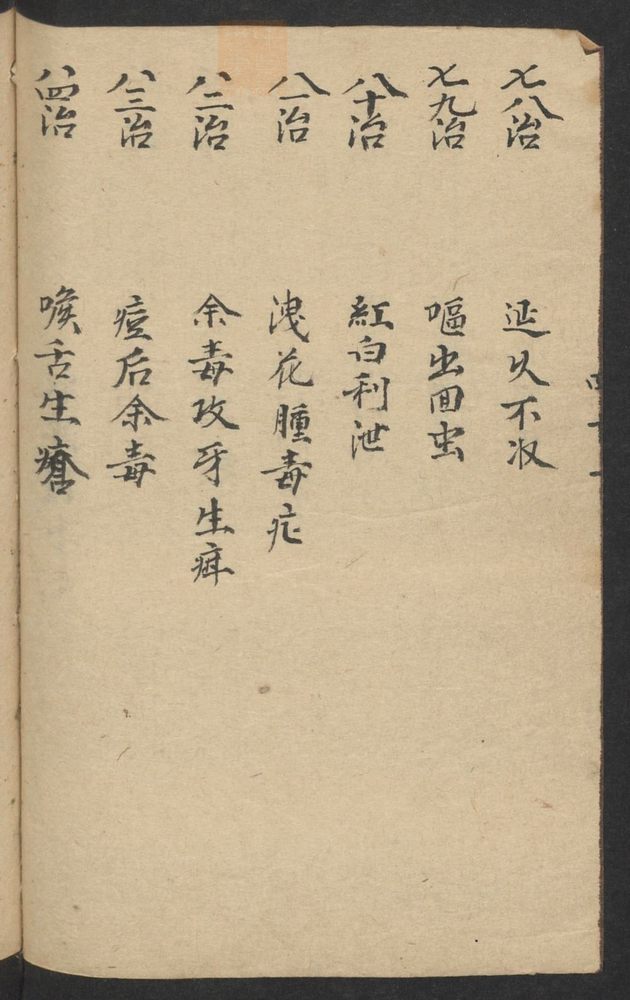 七八治 延久不收
七九治 嘔出回虫
八十治 紅白利泄
八一治 洩花腫毒症
八二治 余毒攻牙生疳
八三治 痘后余毒
八四治 喉舌生瘡